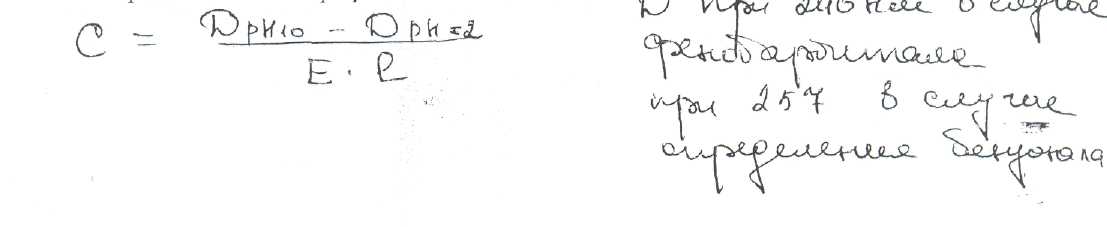 C = (D pH10 – D pH=2) / (E · l)
D при 240 нм в случае
фенобарбитала
при 257 в случае
определения бензонала